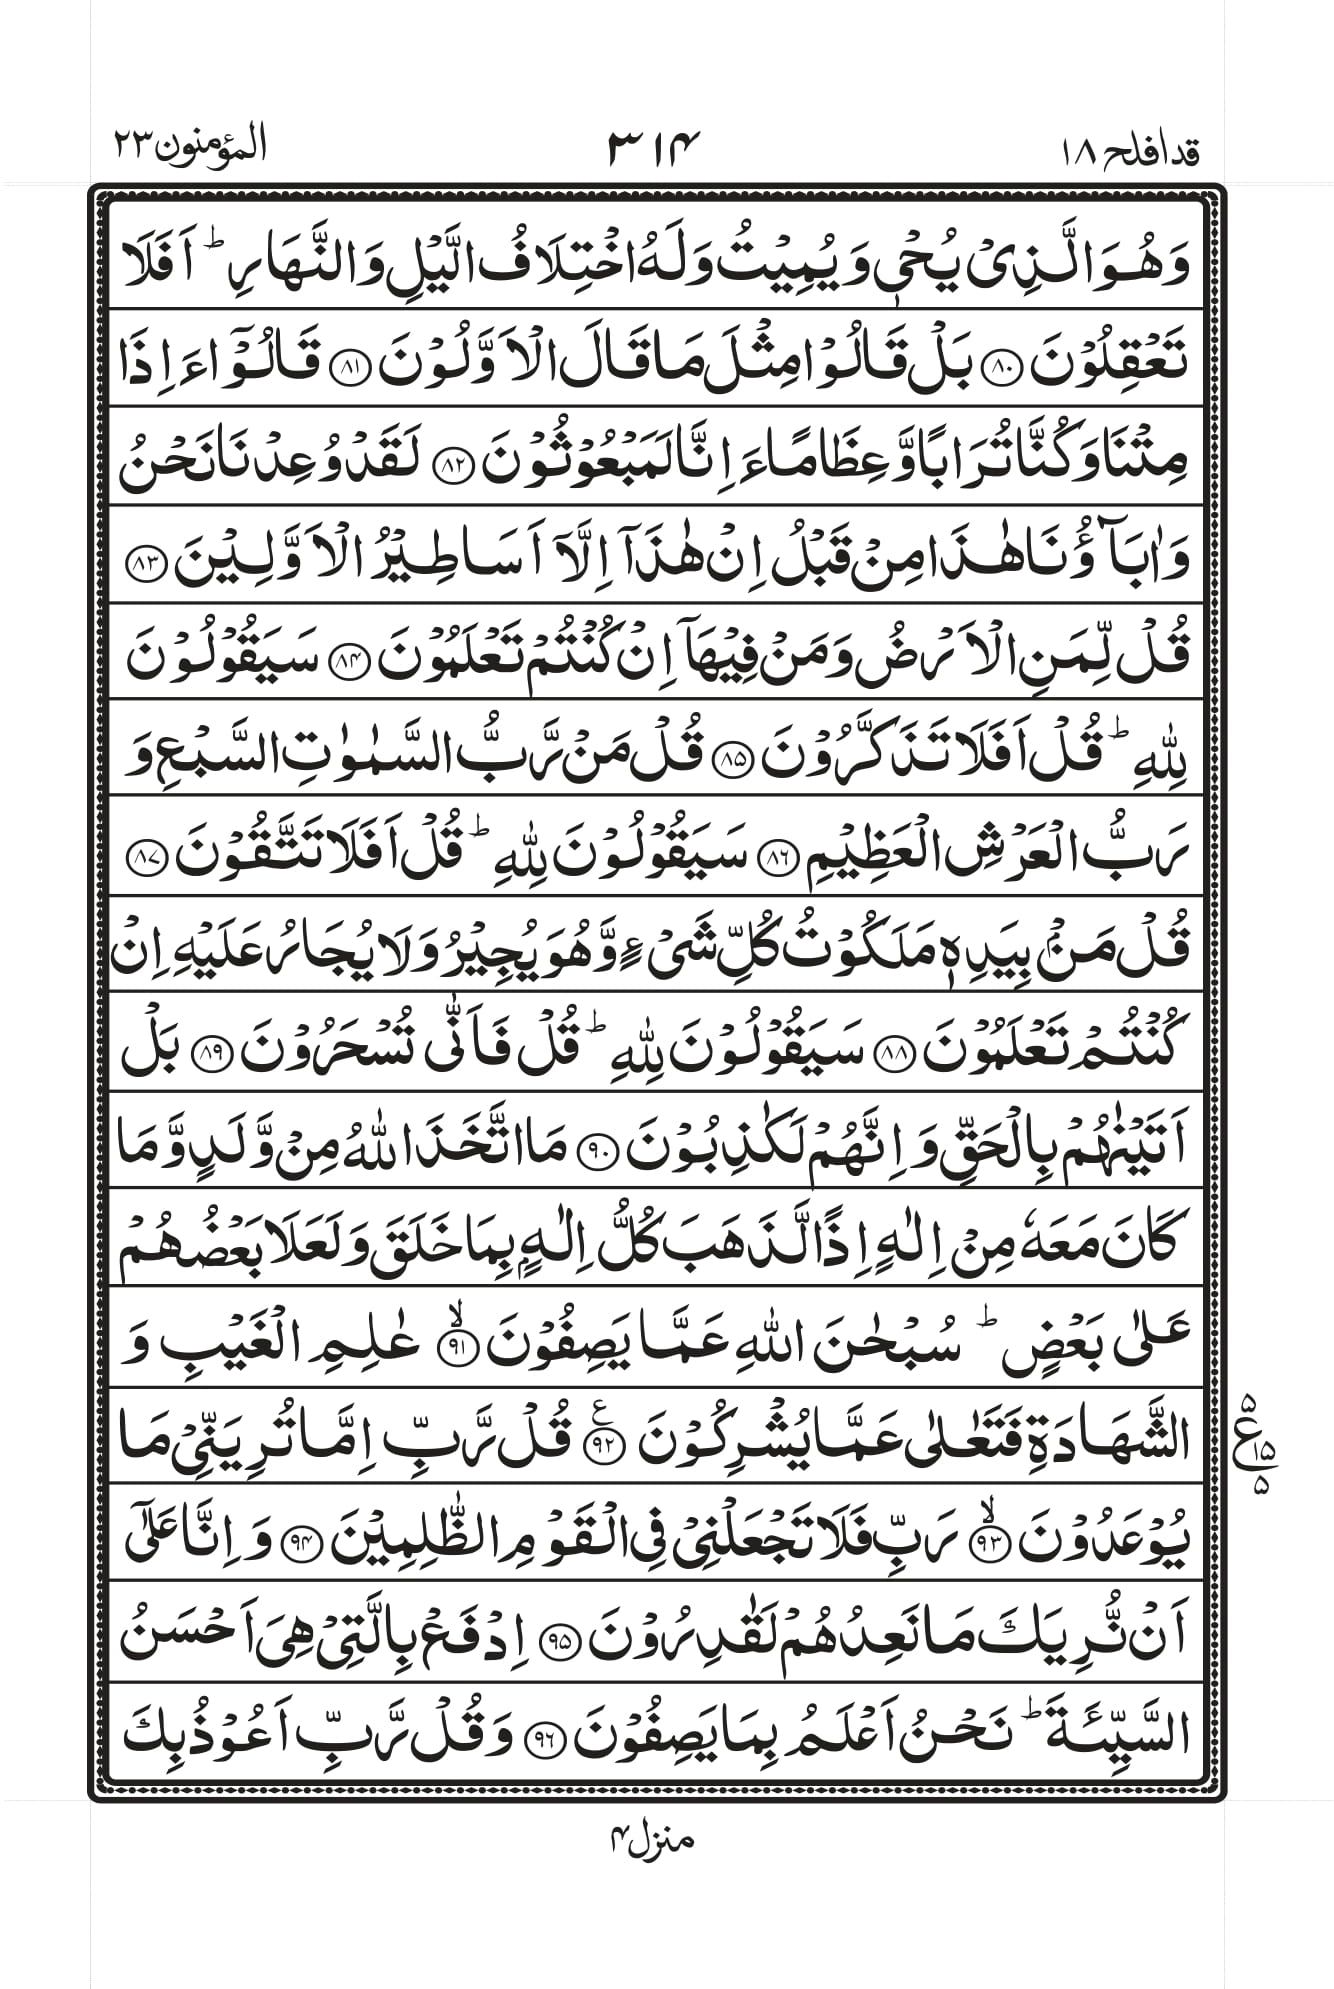 قدافلح ۱۸
۳۱۴
المؤمنون ۲۳
وَهُوَ الَّذِیْ یُحْیٖ وَیُمِیْتُ وَلَهُ اخْتِلَافُ الَّیْلِ وَالنَّهَارِ ؕ اَفَلَا
تَعْقِلُوْنَ ﴿۸۰﴾ بَلْ قَالُوْا مِثْلَ مَا قَالَ الْاَوَّلُوْنَ ﴿۸۱﴾ قَالُوْۤا ءَاِذَا
مِتْنَا وَكُنَّا تُرَابًا وَّعِظَامًا ءَاِنَّا لَمَبْعُوْثُوْنَ ﴿۸۲﴾ لَقَدْ وُعِدْنَا نَحْنُ
وَاٰبَآؤُنَا هٰذَا مِنْ قَبْلُ اِنْ هٰذَاۤ اِلَّاۤ اَسَاطِیْرُ الْاَوَّلِیْنَ ﴿۸۳﴾
قُلْ لِّمَنِ الْاَرْضُ وَمَنْ فِیْهَاۤ اِنْ كُنْتُمْ تَعْلَمُوْنَ ﴿۸۴﴾ سَیَقُوْلُوْنَ
لِلّٰهِ ؕ قُلْ اَفَلَا تَذَكَّرُوْنَ ﴿۸۵﴾ قُلْ مَنْ رَّبُّ السَّمٰوٰتِ السَّبْعِ وَ
رَبُّ الْعَرْشِ الْعَظِیْمِ ﴿۸۶﴾ سَیَقُوْلُوْنَ لِلّٰهِ ؕ قُلْ اَفَلَا تَتَّقُوْنَ ﴿۸۷﴾
قُلْ مَنْۢ بِیَدِهٖ مَلَكُوْتُ كُلِّ شَیْءٍ وَّهُوَ یُجِیْرُ وَلَا یُجَارُ عَلَیْهِ اِنْ
كُنْتُمْ تَعْلَمُوْنَ ﴿۸۸﴾ سَیَقُوْلُوْنَ لِلّٰهِ ؕ قُلْ فَاَنّٰی تُسْحَرُوْنَ ﴿۸۹﴾ بَلْ
اَتَیْنٰهُمْ بِالْحَقِّ وَاِنَّهُمْ لَكٰذِبُوْنَ ﴿۹۰﴾ مَا اتَّخَذَ اللّٰهُ مِنْ وَّلَدٍ وَّمَا
كَانَ مَعَهٗ مِنْ اِلٰهٍ اِذًا لَّذَهَبَ كُلُّ اِلٰهٍۭ بِمَا خَلَقَ وَلَعَلَا بَعْضُهُمْ
عَلٰی بَعْضٍ ؕ سُبْحٰنَ اللّٰهِ عَمَّا یَصِفُوْنَ ﴿ۙ۹۱﴾ عٰلِمِ الْغَیْبِ وَ
الشَّهَادَةِ فَتَعٰلٰی عَمَّا یُشْرِكُوْنَ ﴿۹۲﴾ ع قُلْ رَّبِّ اِمَّا تُرِیَنِّیْ مَا
۵ ع ۱۵ ۵
یُوْعَدُوْنَ ﴿ۙ۹۳﴾ رَبِّ فَلَا تَجْعَلْنِیْ فِی الْقَوْمِ الظّٰلِمِیْنَ ﴿۹۴﴾ وَاِنَّا عَلٰۤی
اَنْ نُّرِیَكَ مَا نَعِدُهُمْ لَقٰدِرُوْنَ ﴿۹۵﴾ اِدْفَعْ بِالَّتِیْ هِیَ اَحْسَنُ
السَّیِّئَةَ ؕ نَحْنُ اَعْلَمُ بِمَا یَصِفُوْنَ ﴿۹۶﴾ وَقُلْ رَّبِّ اَعُوْذُ بِكَ
منزل ۴